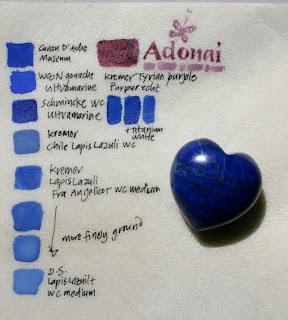 Caran D'Ache
Museum
Adonai
W&N gouache
Ultramarine
Kremer Tyrian purple
Purpur echt
Schmincke WC
Ultramarine
+ titanium
white
Kremer
Chile Lapis Lazuli WC
Kremer
Lapis Lazuli
Fra Angelico WC medium
more finely ground
D.S.
Lapis Lazuli
WC medium